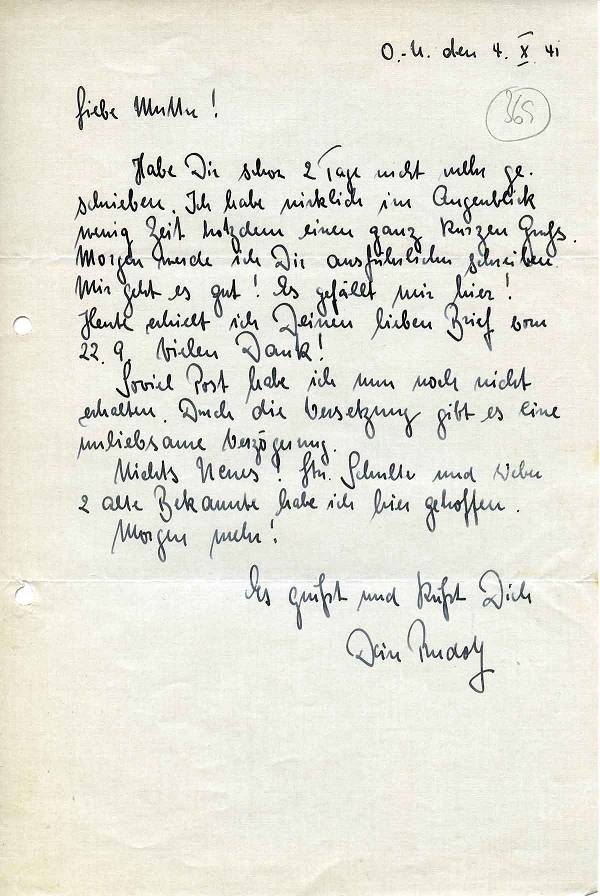 O.-U. den 4. X. 41
369
Liebe Mutter!
Habe Dir schon 2 Tage nicht mehr ge-
schrieben. Ich habe wirklich im Augenblick
wenig Zeit trotzdem einen ganz kurzen Gruß.
Morgen werde ich Dir ausführlicher schreiben.
Mir geht es gut! Es gefällt mir hier!
Heute erhielt ich Deinen lieben Brief vom
22. 9. Vielen Dank!
Soviel Post habe ich nun noch nicht
erhalten. Durch die Versetzung gibt es eine
unliebsame Verzögerung.
Nichts Neues! Schulte und Weber
2 alte Bekannte habe ich hier getroffen.
Morgen mehr!
Es grüßt und küßt Dich
Dein Rudolf